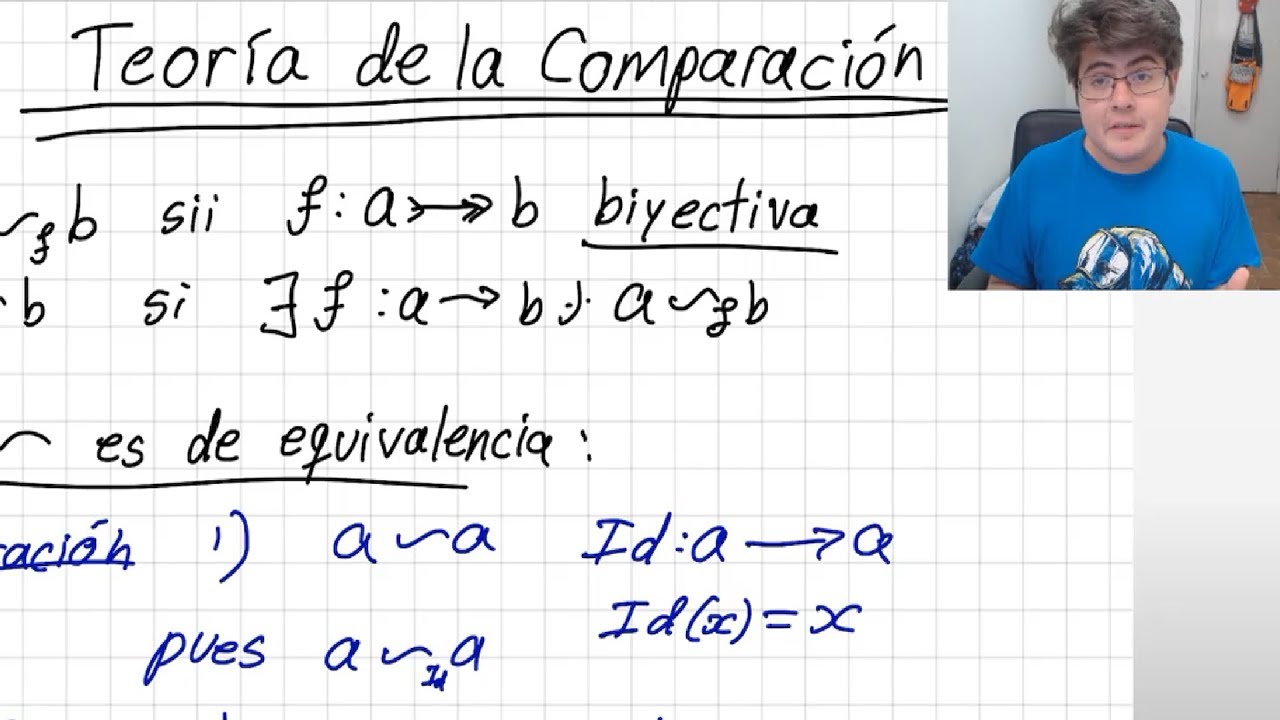 Teoría de la Comparación
~_f b sii f : a ↣↠ b biyectiva
b si ∃ f : a → b ∋· a ~_f b
~ es de equivalencia :
ración 1) a ~ a Id : a → a
Id(x) = x
pues a ~_Id a